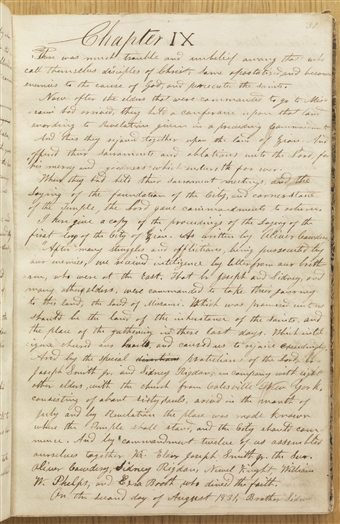 31
Chapter IX
There was much trouble and unbelief among those who
call themselves disciples of Christ. Some apostatized, and become
enemies to the cause of God, and persecute the saints.
Now after the elders that were commanded to go to Miss-
had they held a conference upon that land
according to Revelation given in a preceding commandment.
And thus they rejoiced together upon the land of Zion. And
offered their sacraments and oblations unto the Lord for
his mercy and goodness which endureth for ever.
When they had held their sacrament meetings, and the
laying of the foundation of the City, and corner stone
of the Temple, the Lord gave commandments to return.
I here give a copy of the proceedings of the laying of the
first log of the City of Zion. As written by Oliver Cowdery.
After many struggles and afflictions, being persecuted by
our enemies, we received intelligence by letter from our breth-
ren, who were at the East. That br Joseph and Sidney, and
many other elders, were commanded to take their journey
to this land, the land of Missouri. Which was promised unto us
should be the land of the inheritance of the saints, and
the place of the gathering in these last days. Which intel-
igence cheered our hearts, and caused us to rejoice exceedingly.
And by the special protection of the Lord, br
Joseph Smith jr. and Sidney Rigdon, in company with eight
other elders, with the church from Colesville New York,
consisting of about sixty souls, arived in the month of
July and by Revelation the place was made known
where the Temple shall stand, and the City should com-
mence. And by commandment twelve of us assembled
ourselves together Viz. Elder Joseph Smith jr. the Seer,
Oliver Cowdery, Sidney Rigdon, Newel Knight, William
W. Phelps, and Ezra Booth who denied the faith.
On the second day of August 1831, Brother Sidney